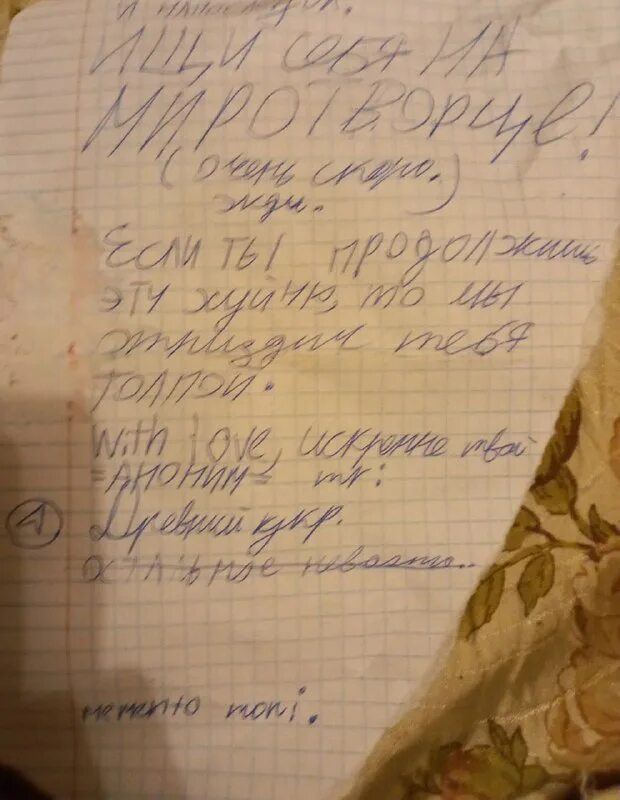 ИЩИ СЕБЯ НА
МИРОТВОРЦЕ!
(очень скоро.)
жди.
ЕСЛИ ТЫ ПРОДОЛЖИШЬ
ЭТУ хуйню, то мы
отпиздим тебя
ТОЛПОЙ.
With love, искренне твой
"АНОНИМ" mr:
① Древний укр.
ОСТАЛЬНОЕ неважно..
мементо mori.